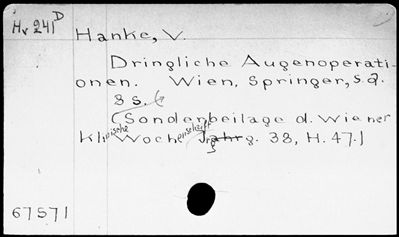 Hv 241D
Hanke, V.
Dringliche Augenoperati-
onen. Wien, Springer, s.a.
8 s.
(Sonderbeilage d. Wiener
klinische Wochenschrift Jrg. 38, H. 47.)
67571